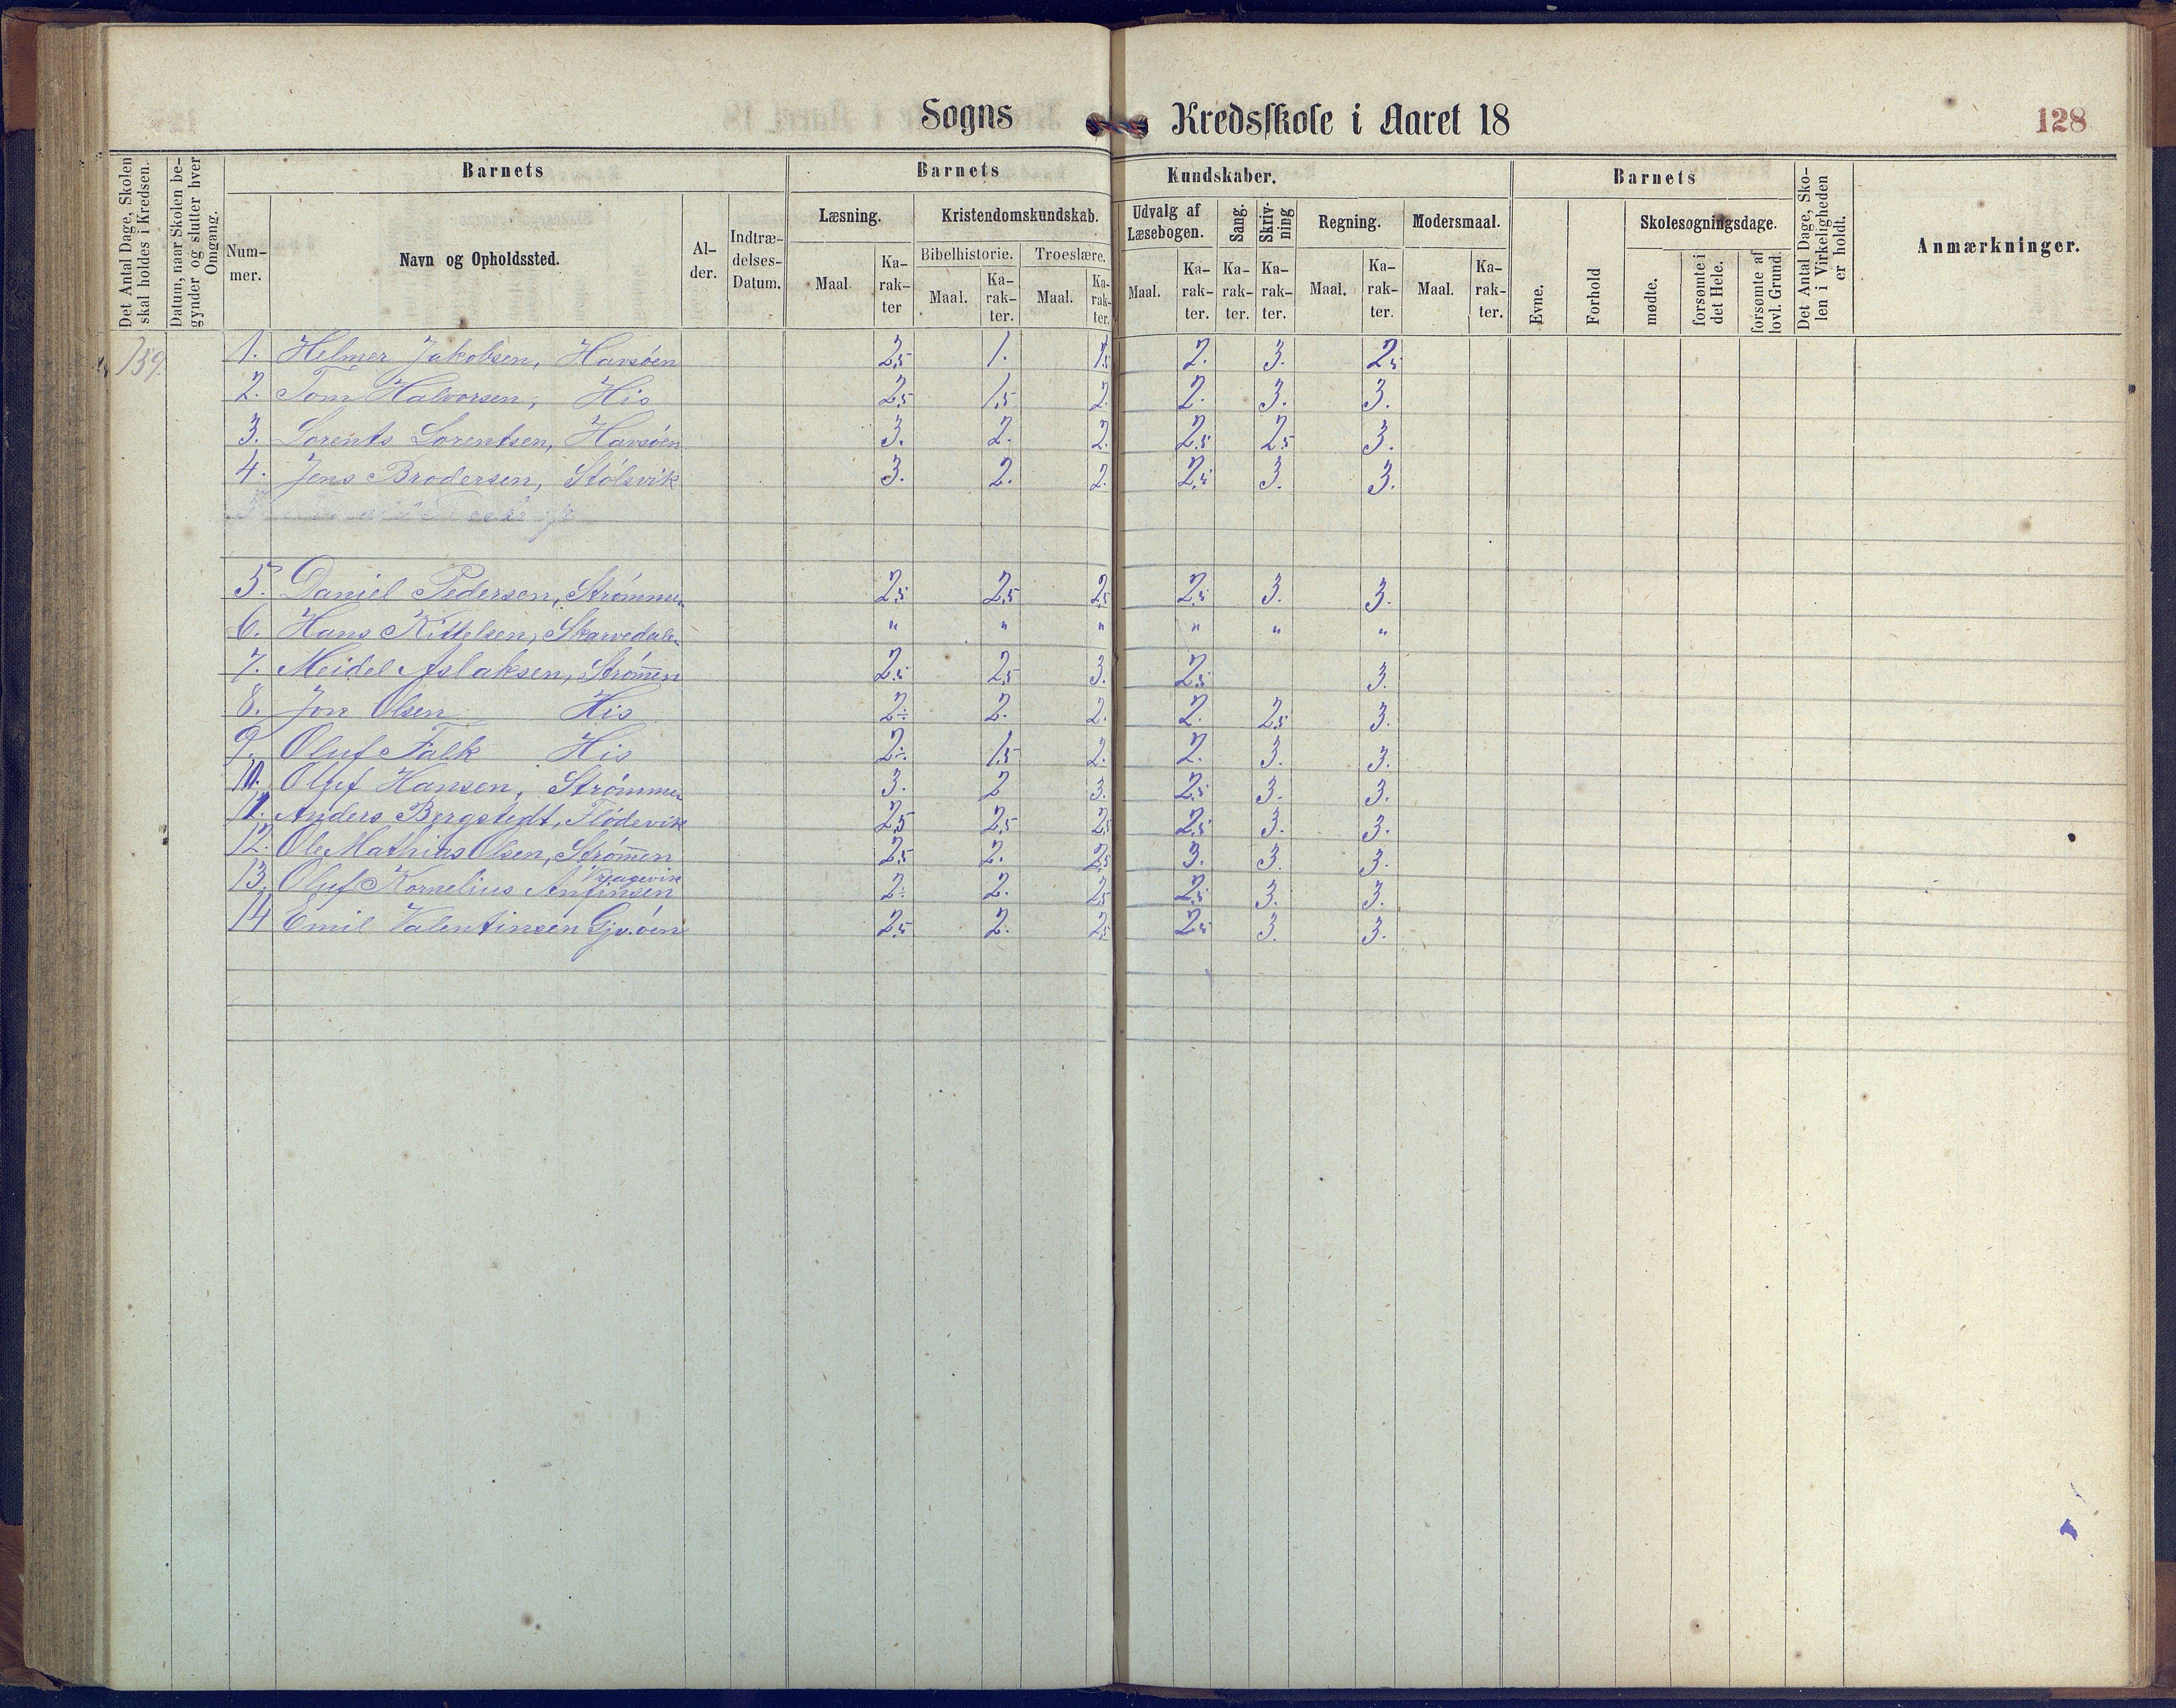 Sogns Kredsskole i Aaret 18 128
Det Antal Dage, Skolen skal holdes i Kredsen.
Datum, naar Skolen be-gynder og slutter hver Omgang.
Barnets
Num-mer.
Navn og Opholdssted.
Al-der.
Indtræ-delses-Datum.
Barnets Kundskaber.
Læsning.
Maal.
Ka-rak-ter
Kristendomskundskab.
Bibelhistorie.
Maal.
Ka-rak-ter.
Troeslære.
Maal.
Ka-rak-ter.
Udvalg af Læsebogen.
Maal.
Ka-rak-ter.
Sang.
Ka-rak-ter.
Skriv-ning
Ka-rak-ter.
Regning.
Maal.
Ka-rak-ter.
Modersmaal.
Maal.
Ka-rak-ter.
Barnets
Evne.
Forhold
Skolesøgningsdage.
mødte.
forsømte i det Hele.
forsømte af lovl. Grund.
Det Antal Dage, Sko-len i Virkeligheden er holdt.
Anmærkninger.
159. 1. Helmer Jakobsen, Havsøen 2,5 1. 1,5 2. 3. 2,5
2. Tom Halvorsen, His 2,5 1,5 2. 2. 3. 3.
3. Lorents Lorentsen, Havsøen 3. 2. 2. 2,5 2,5 3.
4. Jens Brodersen, Stølsvik 3. 2. 2. 2,5 3. 3.
5. Daniel Pedersen, Strømmen 2,5 2,5 2,5 2,5 3. 3.
6. Hans Kittelsen, Skarvedalen " " " " " "
7. Meidel Aslaksen, Strømen 2,5 2,5 3. 2,5 3.
8. Jon Olsen His 2÷ 2. 2. 2. 2,5 3.
9. Oluf Falk His 2÷ 1,5 2. 2. 3. 3.
10. Oluf Hansen, Strømmen 3. 2 3. 2,5 3. 3.
11. Anders Bergstedt, Flödevik 2,5 2,5 2,5 2,5 3. 3.
12. Ole Mathias Olsen, Strømen 2,5 2. 2,5 3. 3. 3.
13. Oluf Kornelius Anfinsen 2÷ 2. 2,5 2,5 3. 3.
14 Emil Valentinsen Gjs.øen 2,5 2. 2,5 2,5 3. 3.